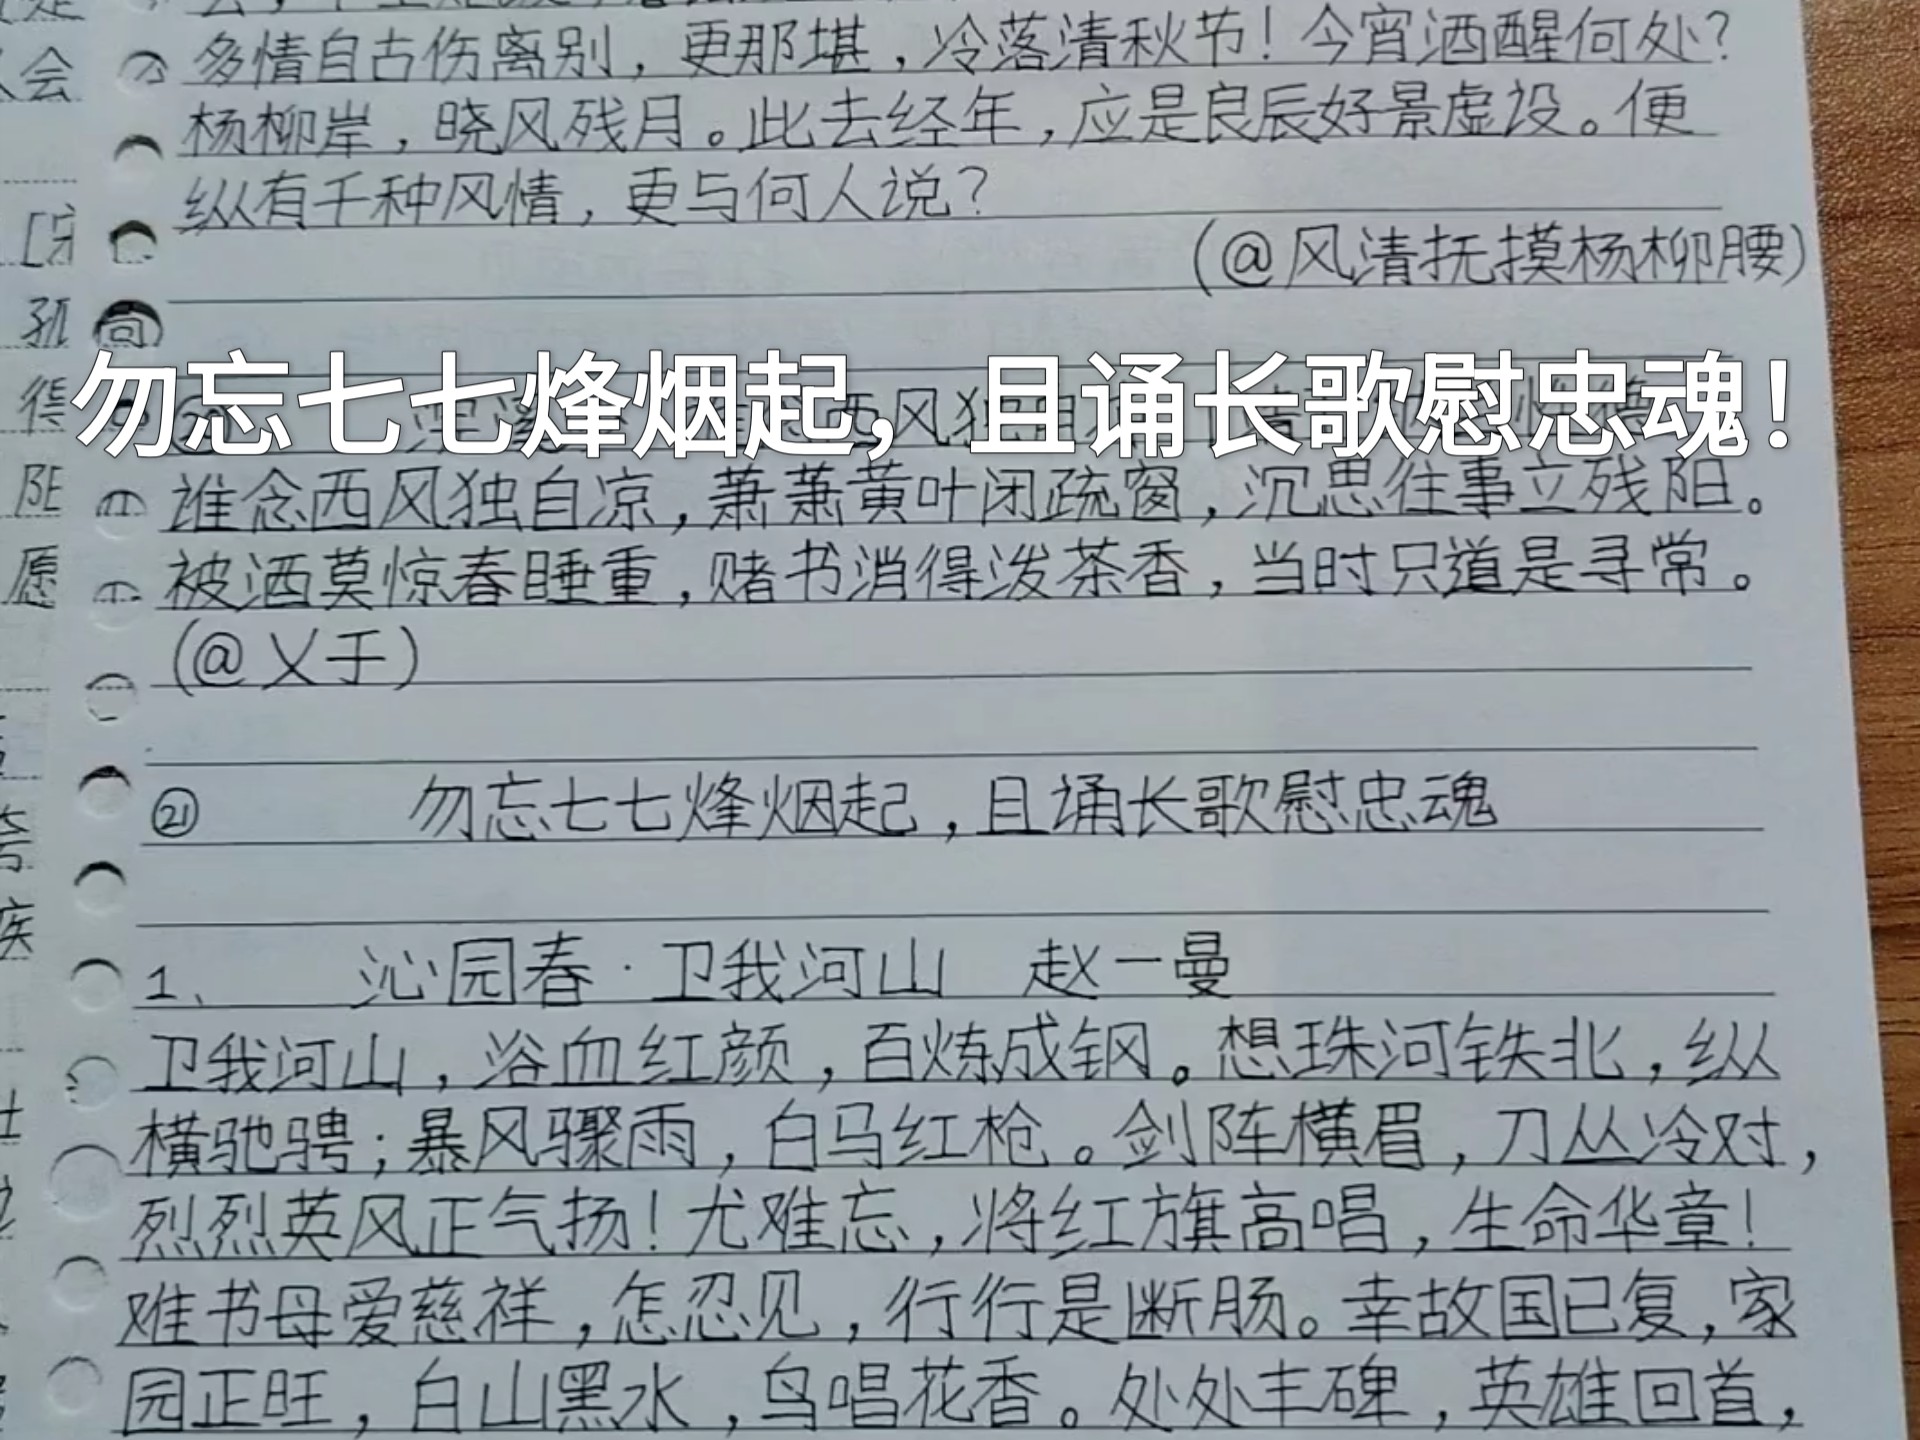 多情自古伤离别，更那堪，冷落清秋节！今宵酒醒何处？
杨柳岸，晓风残月。此去经年，应是良辰好景虚设。便
纵有千种风情，更与何人说？
（@风清抚摸杨柳腰）
勿忘七七烽烟起，且诵长歌慰忠魂！
谁念西风独自凉，萧萧黄叶闭疏窗，沉思往事立残阳。
被酒莫惊春睡重，赌书消得泼茶香，当时只道是寻常。
（@乂于）
㉑ 勿忘七七烽烟起，且诵长歌慰忠魂
1、 沁园春·卫我河山 赵一曼
卫我河山，浴血红颜，百炼成钢。想珠河铁北，纵
横驰骋；暴风骤雨，白马红枪。剑阵横眉，刀丛冷对，
烈烈英风正气扬！尤难忘，将红旗高唱，生命华章！
难书母爱慈祥，怎忍见，行行是断肠。幸故国已复，家
园正旺，白山黑水，鸟唱花香。处处丰碑，英雄回首，
会
孤
得
阳
愿
疾